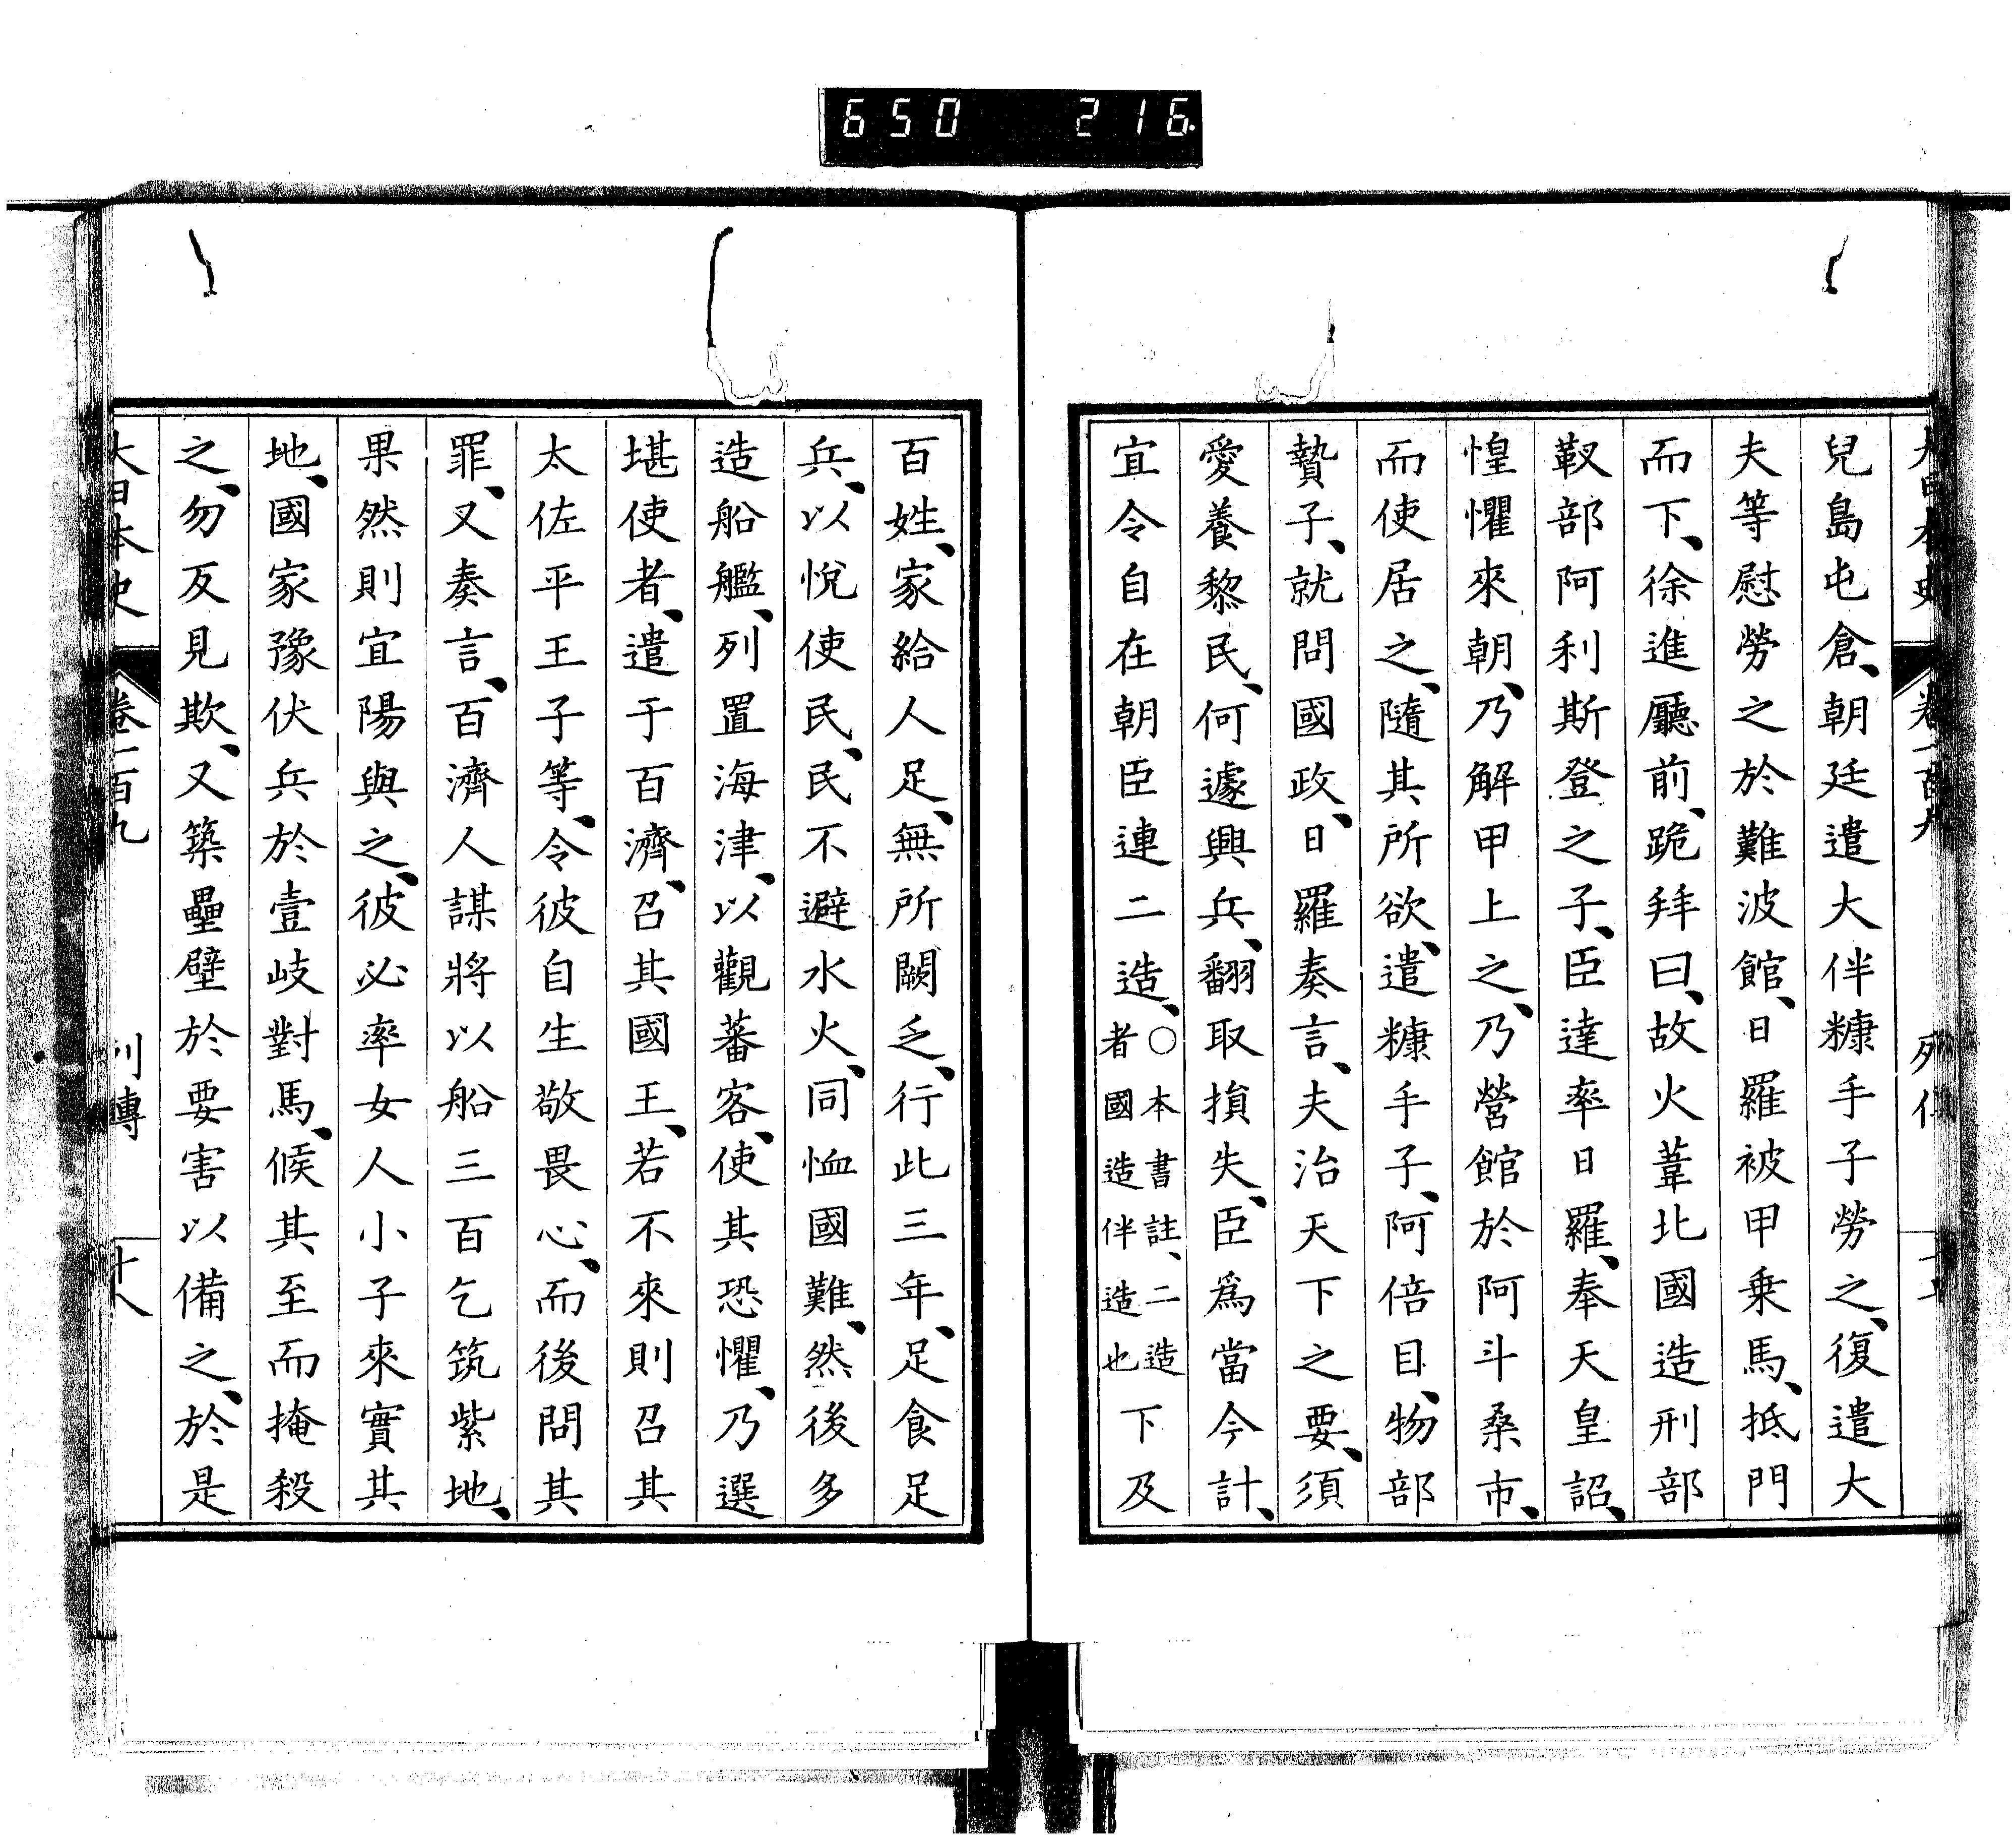 650 216.
大日本史 卷一百九 列傳
兒島屯倉、朝廷遣大伴糠手子勞之、復遣大
夫等慰勞之於難波館、日羅被甲乗馬、抵門
而下、徐進廳前、跪拜曰、故火葦北國造刑部
靫部阿利斯登之子、臣達率日羅、奉天皇詔、
惶懼來朝、乃解甲上之、乃營館於阿斗桑市、
而使居之、隨其所欲、遣糠手子、阿倍目、物部
贄子、就問國政、日羅奏言、夫治天下之要、須
愛養黎民、何遽興兵、翻取損失、臣爲當今計、
宜令自在朝臣連二造、○本書註、二造者國造伴造也下及
百姓、家給人足、無所闕乏、行此三年、足食足
兵、以悅使民、民不避水火、同恤國難、然後多
造船艦、列置海津、以觀蕃客、使其恐懼、乃選
堪使者、遣于百濟、召其國王、若不來則召其
太佐平王子等、令彼自生敬畏心、而後問其
罪、又奏言、百濟人謀將以船三百乞筑紫地、
果然則宜陽與之、彼必率女人小子來實其
地、國家豫伏兵於壹岐對馬、候其至而掩殺
之、勿反見欺、又築壘壁於要害以備之、於是
大日本史 卷一百九 列傳 十八